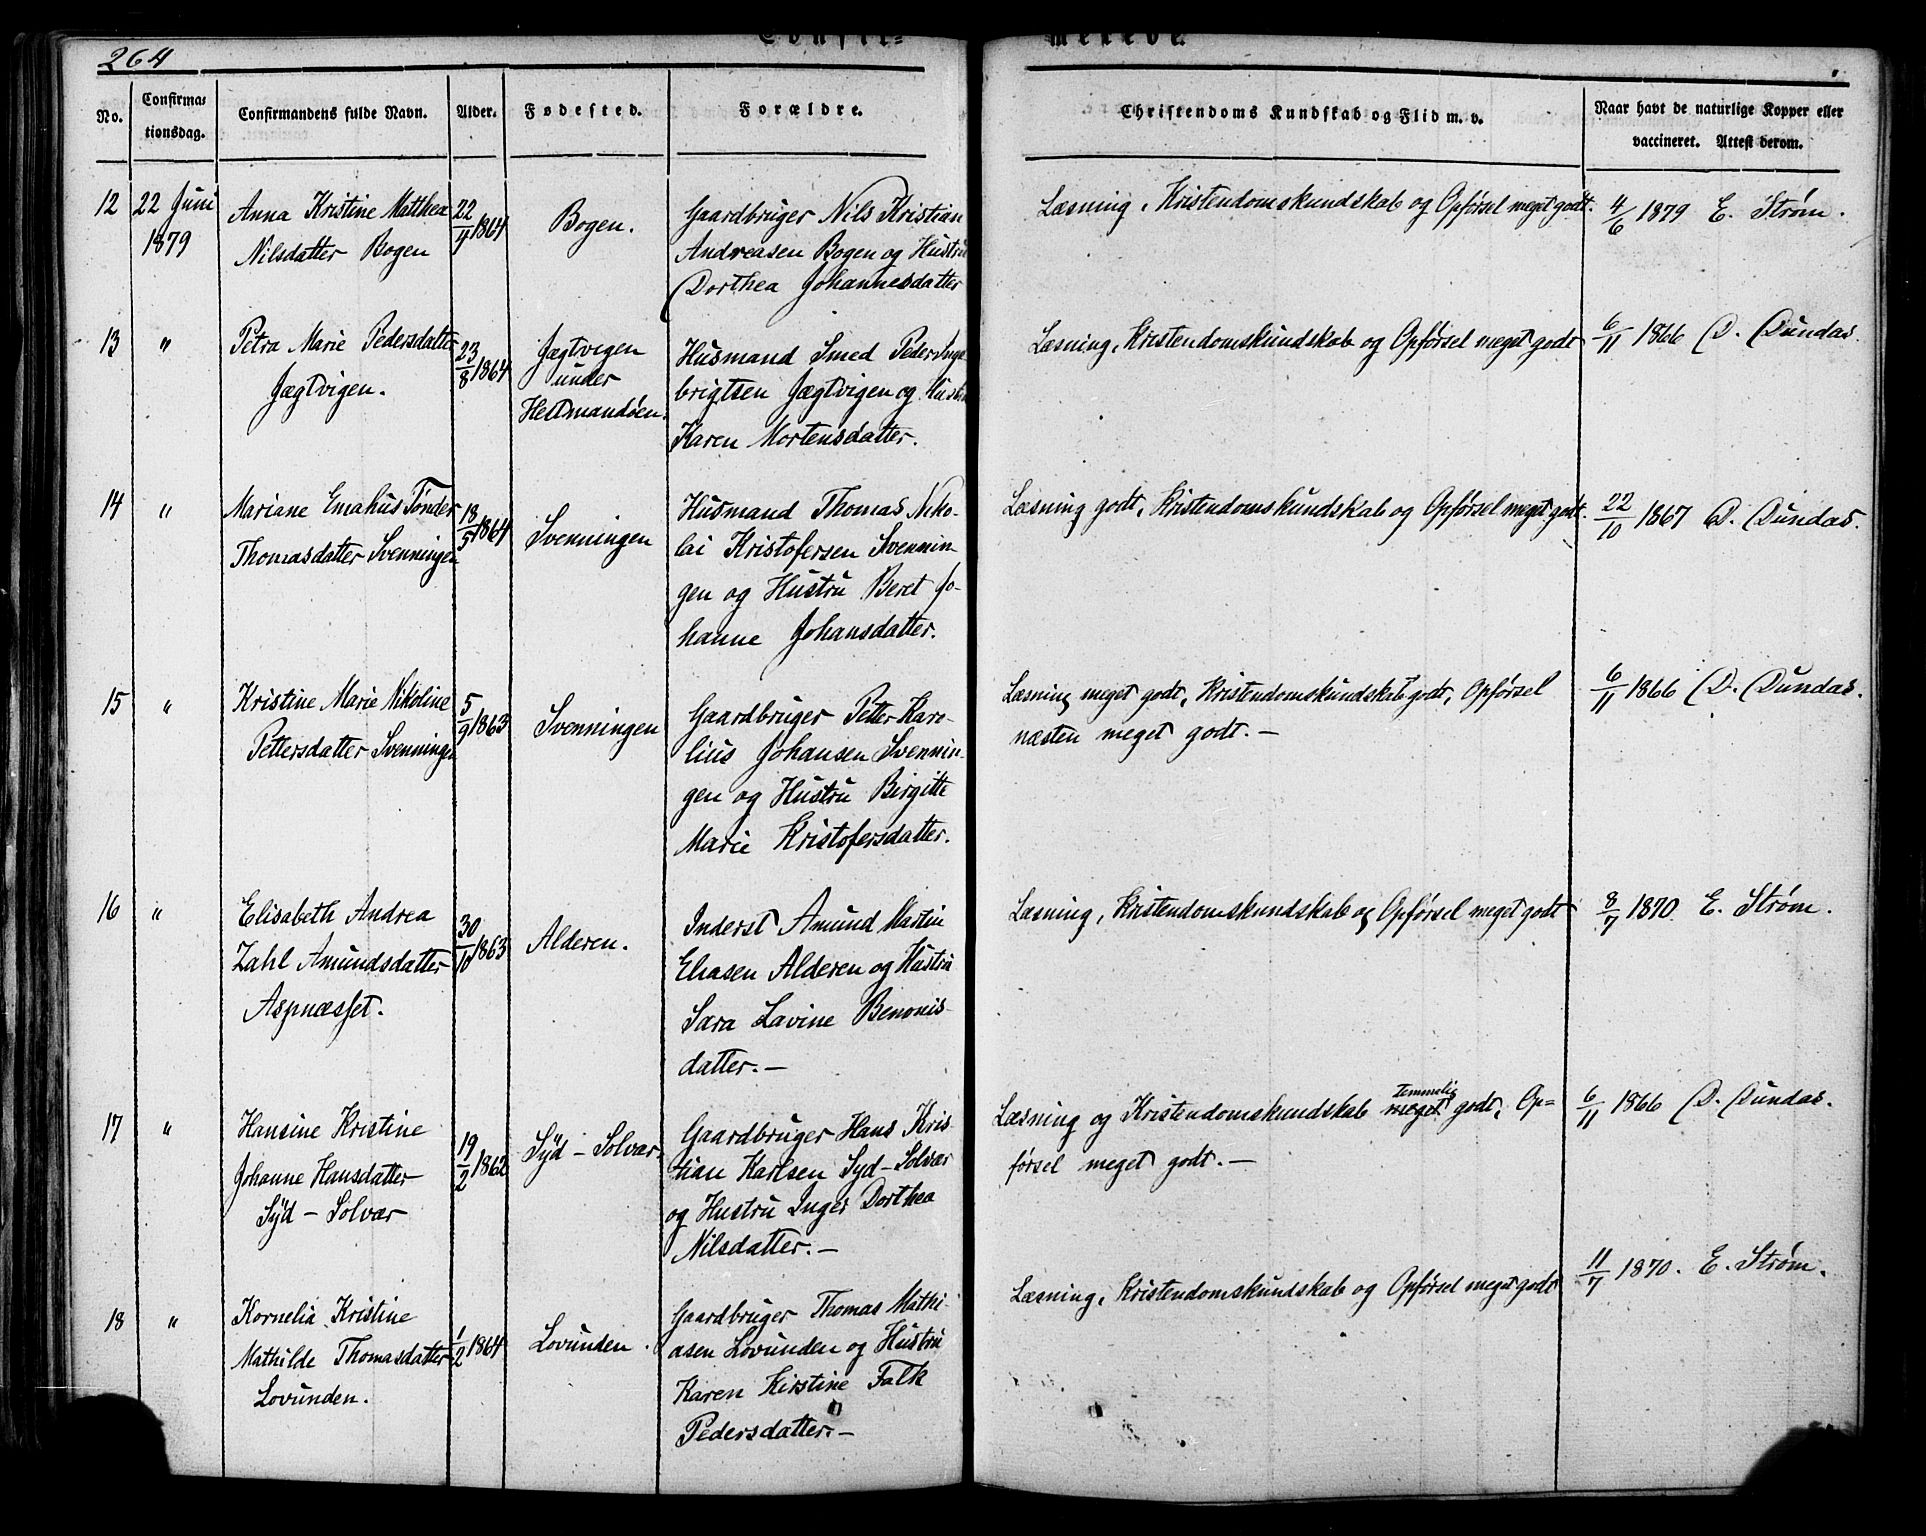 264
Confir= merede.
No.
Confirma=
tionsdag.
Confirmandens fulde Navn.
Alder.
Fødested.
Forældre.
Christendoms Kundskab og Flid m. v.
Naar havt de naturlige Kopper eller
vaccineret. Attest derom.
12
22 Juni
1879
Anna Kristine Matthea
Nilsdatter Bogen
22/4 1864
Bogen.
Gaardbruger Nils Kristian
Andreasen Bogen og Hustru
Dorthea Johannesdatter
Læsning, Kristendomskundskab og Opførsel meget godt.
4/6 1879 E. Strøm.
13
"
Petra Marie Pedersdatter
Jægtvigen.
23/8 1864
Jægtvigen
under
Hestmandøen.
Husmand Smed Peder Inge
brigtsen Jægtvigen og Hustru
Karen Mortensdatter.
Læsning, Kristendomskundskab og Opførsel meget godt
6/11 1866 D. Dundas.
14
"
Mariane Emahus Tønder
Thomasdatter Svenningen
18/5 1864
Svenningen
Husmand Thomas Niko-
lai Kristofersen Svennin-
gen og Hustru Beret Jo-
hanne Johansdatter.
Læsning godt, Kristendomskundskab og Opførsel meget godt.
22/10 1867 D. Dundas.
15
"
Kristine Marie Nikoline
Pettersdatter Svenningen
5/9 1863
Svenningen
Gaardbruger Petter Karo-
lius Johansen Svennin-
gen og Hustru Birgitte
Marie Kristofersdatter.
Læsning meget godt, Kristendomskundskab godt, Opførsel
næsten meget godt. –
6/11 1866 D. Dundas.
16
"
Elisabeth Andrea
Zahl Amundsdatter
Aspnæsset.
30/10 1863
Alderen.
Inderst Amund Martin
Eliasen Alderen og Hustru
Sara Lavine Benonis-
datter. –
Læsning, Kristendomskundskab og Opførsel meget godt
8/7 1870. E. Strøm.
17
"
Hansine Kristine
Johanne Hansdatter
Syd – Solvær
19/2 1862
Syd – Solvær.
Gaardbruger Hans Kris-
tian Karlsen Syd – Solvær
og Hustru Inger Dorthea
Nilsdatter. –
temmelig
Læsning og Kristendomskundskab meget godt, Op=
førsel meget godt. –
6/11 1866 D. Dundas.
18
"
Kornelia Kristine
Mathilde Thomasdatter
Lovunden.
1/2 1864
Lovunden.
Gaardbruger Thomas Mathi-
asen Lovunden og Hustru
Karen Kirstine Falk
Pedersdatter. –
Læsning, Kristendomskundskab og Opførsel meget godt
11/7 1870. E. Strøm.